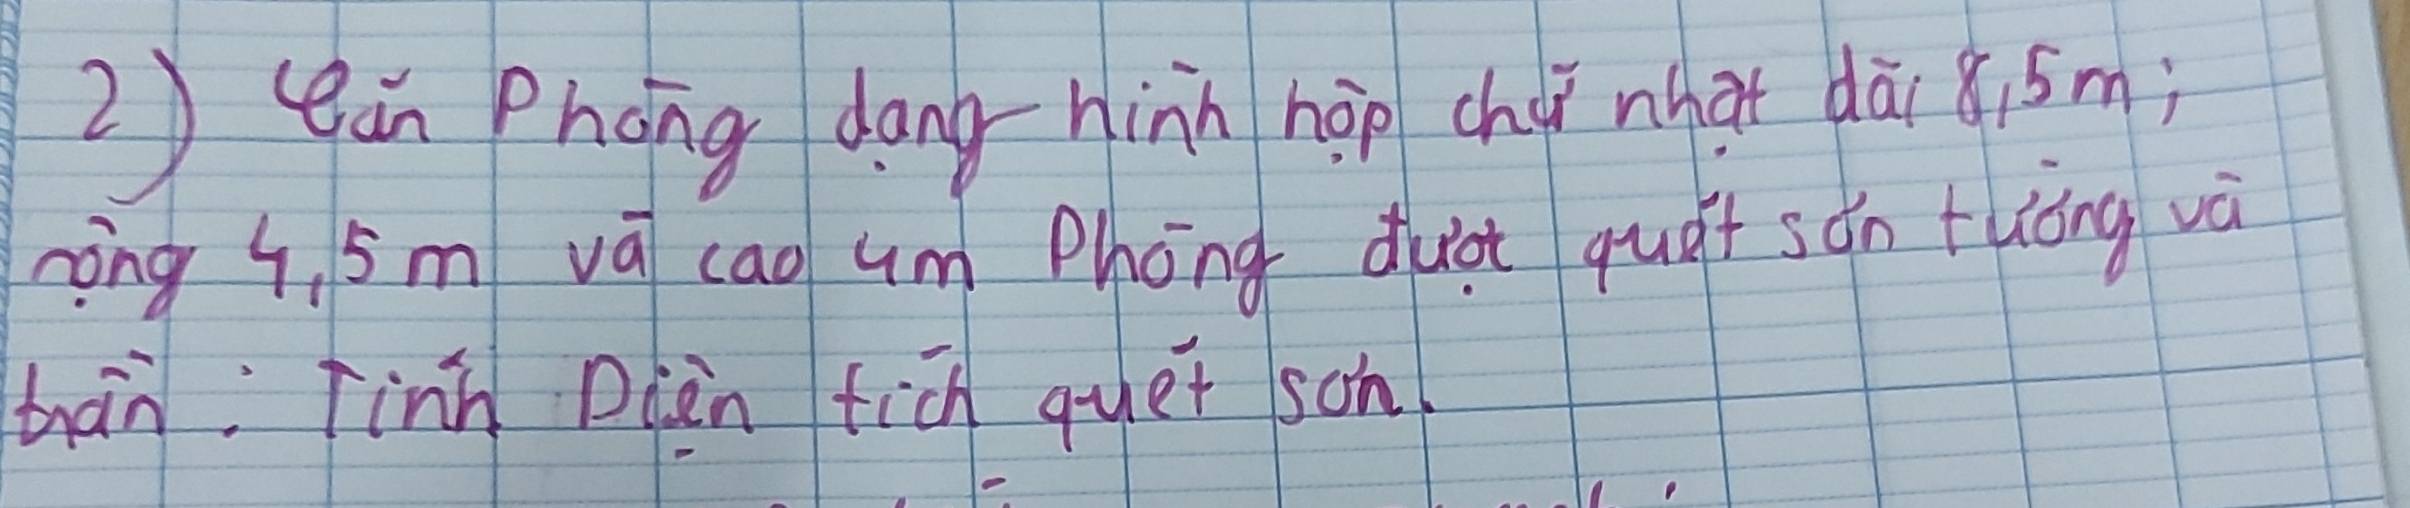 2) Căn Phòng dạng hình hộp chữ nhật dài 8,5m;
rộng 4,5m và cao 4m Phòng được quét sơn tường và
trần : Tính Diện tích quét sơn.